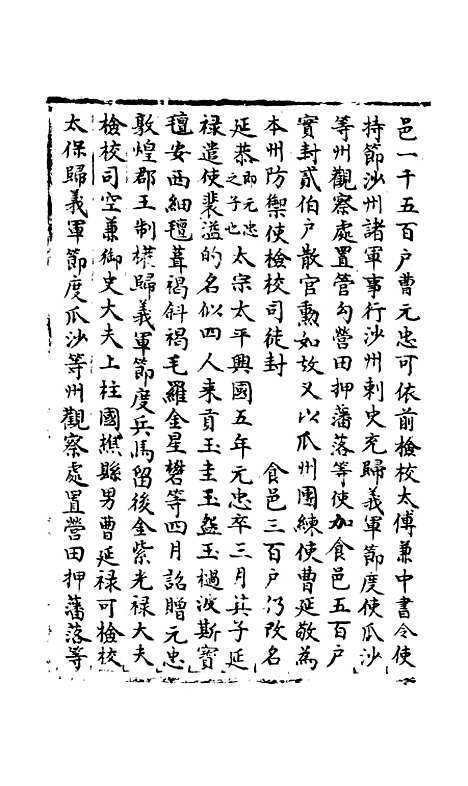 邑一千五百戶曹元忠可依前檢校太傅兼中書令使
持節沙州諸軍事行沙州刺史充歸義軍節度使瓜沙
等州觀察處置管勾營田押藩落等使加食邑五百戶
實封貳伯戶散官勳如故又以瓜州團練使曹延敬為
本州防禦使檢校司徒封 食邑三百戶仍改名
延恭即元忠之子也太宗太平興國五年元忠卒三月其子延
祿遣使裴溢的名似四人来貢玉圭玉盌玉檛波斯寶
氊安西細氊茸褐斜褐毛羅金星礬等四月詔贈元忠
敦煌郡王制權歸義軍節度兵馬留後金紫光祿大夫
檢校司空兼御史大夫上柱國譙縣男曹延祿可檢校
太保歸義軍節度瓜沙等州觀察處置營田押藩落等